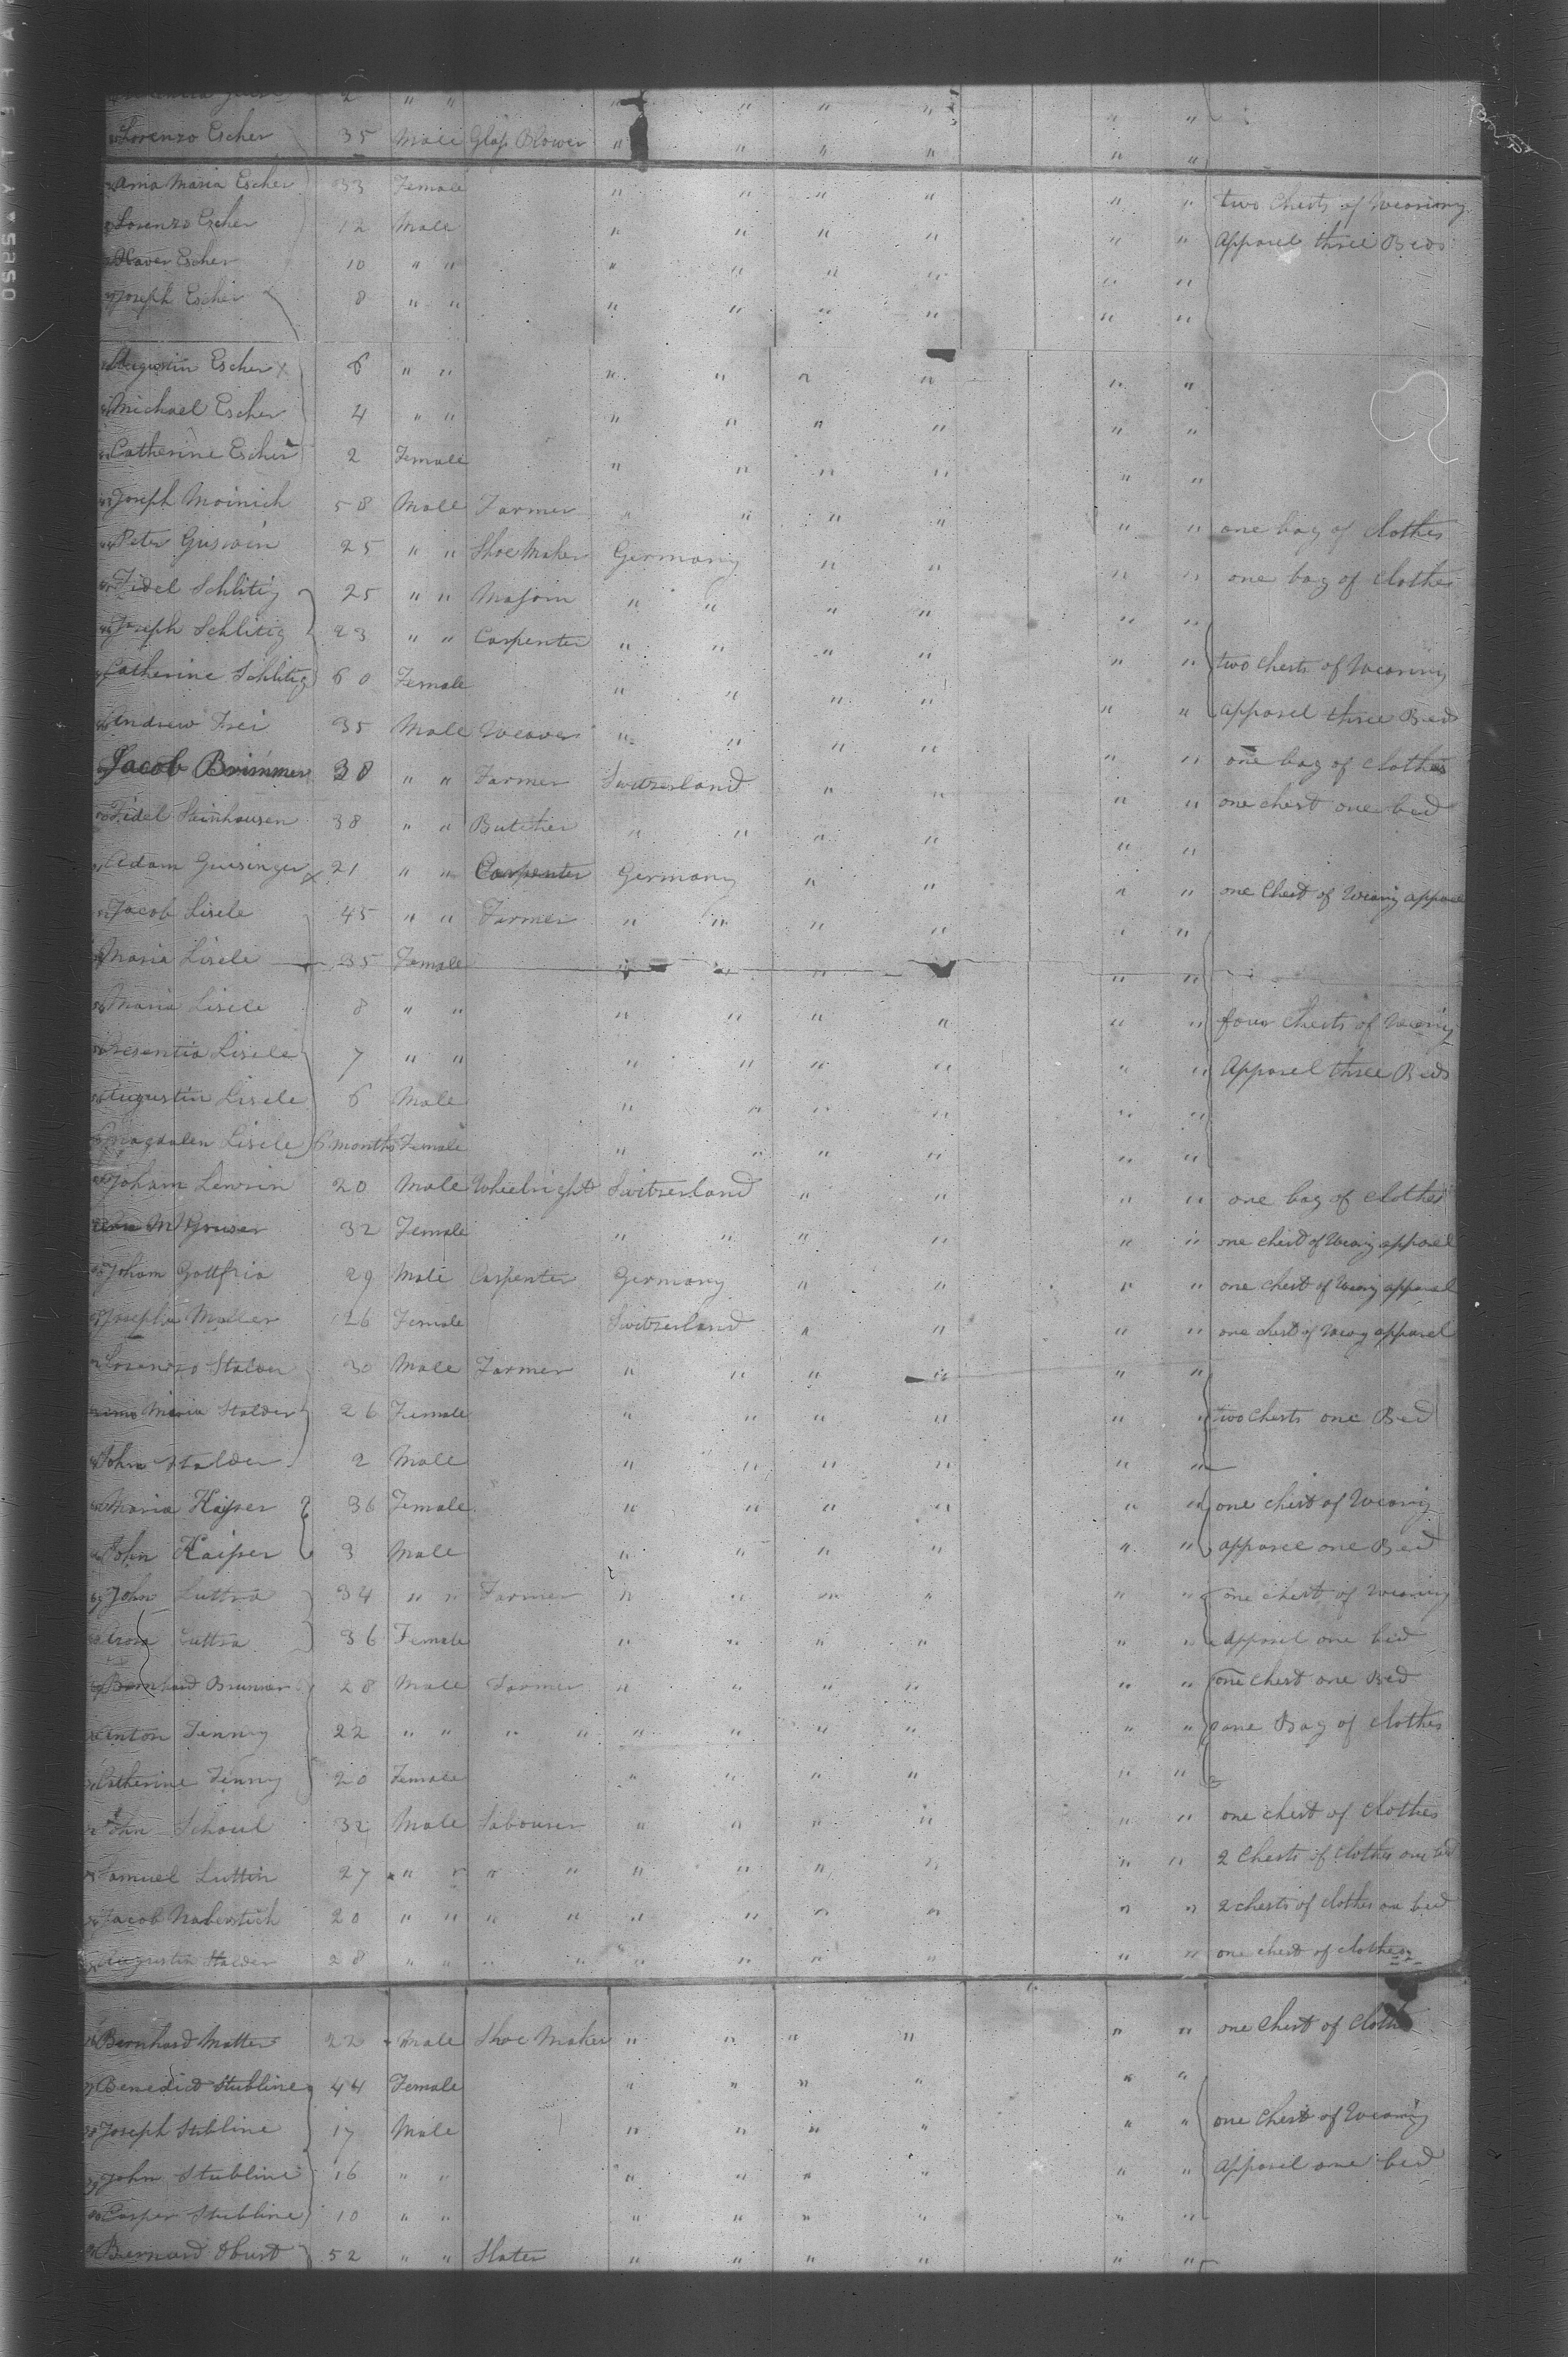 2 " " " " " " " "
Lorenzo Escher 35 Male Glass Blower " " " " " "
Anna Maria Escher 33 Female " " " " " " two Chests of Wearing
Lorenzo Escher 12 Male " " " " " " Apparel three Beds
Xaver Escher 10 " " " " " " " "
Joseph Escher 8 " " " " " " " "
Augustin Escher X 6 " " " " " " " "
Michael Escher 4 " " " " " " " "
Catherine Escher 2 Female " " " " " "
Joseph Moinich 58 Male Farmer " " " " " " one bag of clothes
Peter 25 " " Shoe Maker Germany " " " " one bag of clothes
Fidel Schlitig 25 " " " " " " " "
Joseph Schlitig 23 " " Carpenter " " " " " " two chests of Wearing
Catherine Schlitig 60 Female " " " " " " apparel three Bed
Andrew Frei 35 Male Weaver " " " " " " one bag of clothes
Jacob Brimmer 38 " " Farmer Switzerland " " " " one chest one bed
Fidel Steinhausen 38 " " Butcher " " " " " "
Adam Guisinger X 21 " " Carpenter Germany " " " " one Chest of Wearing apparel
Jacob Lisele 45 " " Farmer " " " " " "
Maria Lisele 35 Female " " " " "
Maria Lisele 8 " " " " " " " " four Chests of Wearing
Cresentia Lisele 7 " " " " " " " " Apparel three Beds
Augustin Lisele 6 Male " " " " " "
Magdalen Lisele 6 months Female " " " " " "
Joham Lewrin 20 Male Wheelright Switzerland " " " " one bag of clothes
32 Female " " " " " " one chest of Wearing apparel
Joham Gottfrid 29 Male Carpenter Germany " " " " one chest of Wearing apparel
Josepha Muller 26 Female Switzerland " " " " one chest of Wearing apparel
Lorenzo Stalder 30 Male Farmer " " " " " "
Anna Maria Stalder 26 Female " " " " " " two chests one Bed
John Stalder 2 Male " " " " " "
Maria Kaiser 36 Female " " " " " " one chest of Wearing
John Kaiser 3 Male " " " " " " apparel one Bed
John Luttra 34 " " Farmer " " " " " " one chest of wearing
Luttra 36 Female " " " " " " Apparel one bed
Bernhard Brunner 28 Male Farmer " " " " " " one chest one Bed
Anton Jenny 22 " " " " " " " " " " one Bag of clothes
Catherine Jenny 20 Female " " " " "
John Schaul 32 Male Labourer " " " " " " one chest of clothes
Samuel Luttin 27 " " " " " " " " " " 2 Chests of clothes one bed
Jacob Naberstich 20 " " " " " " " " " " 2 chests of clothes one bed
Augustin Stalder 28 " " " " " " " " " " one chest of clothes
Bernhard Matter 22 Male Shoe Maker " " " " " " one chest of cloth
Benedict Stubline 44 Female " " " " " "
Joseph Stubline 17 Male " " " " " " one chest of Wearing
John Stubline 16 " " " " " " " " apparel one bed
Casper Stubline 10 " " " " " " " "
Bernard 52 " " Slater " " " " " "